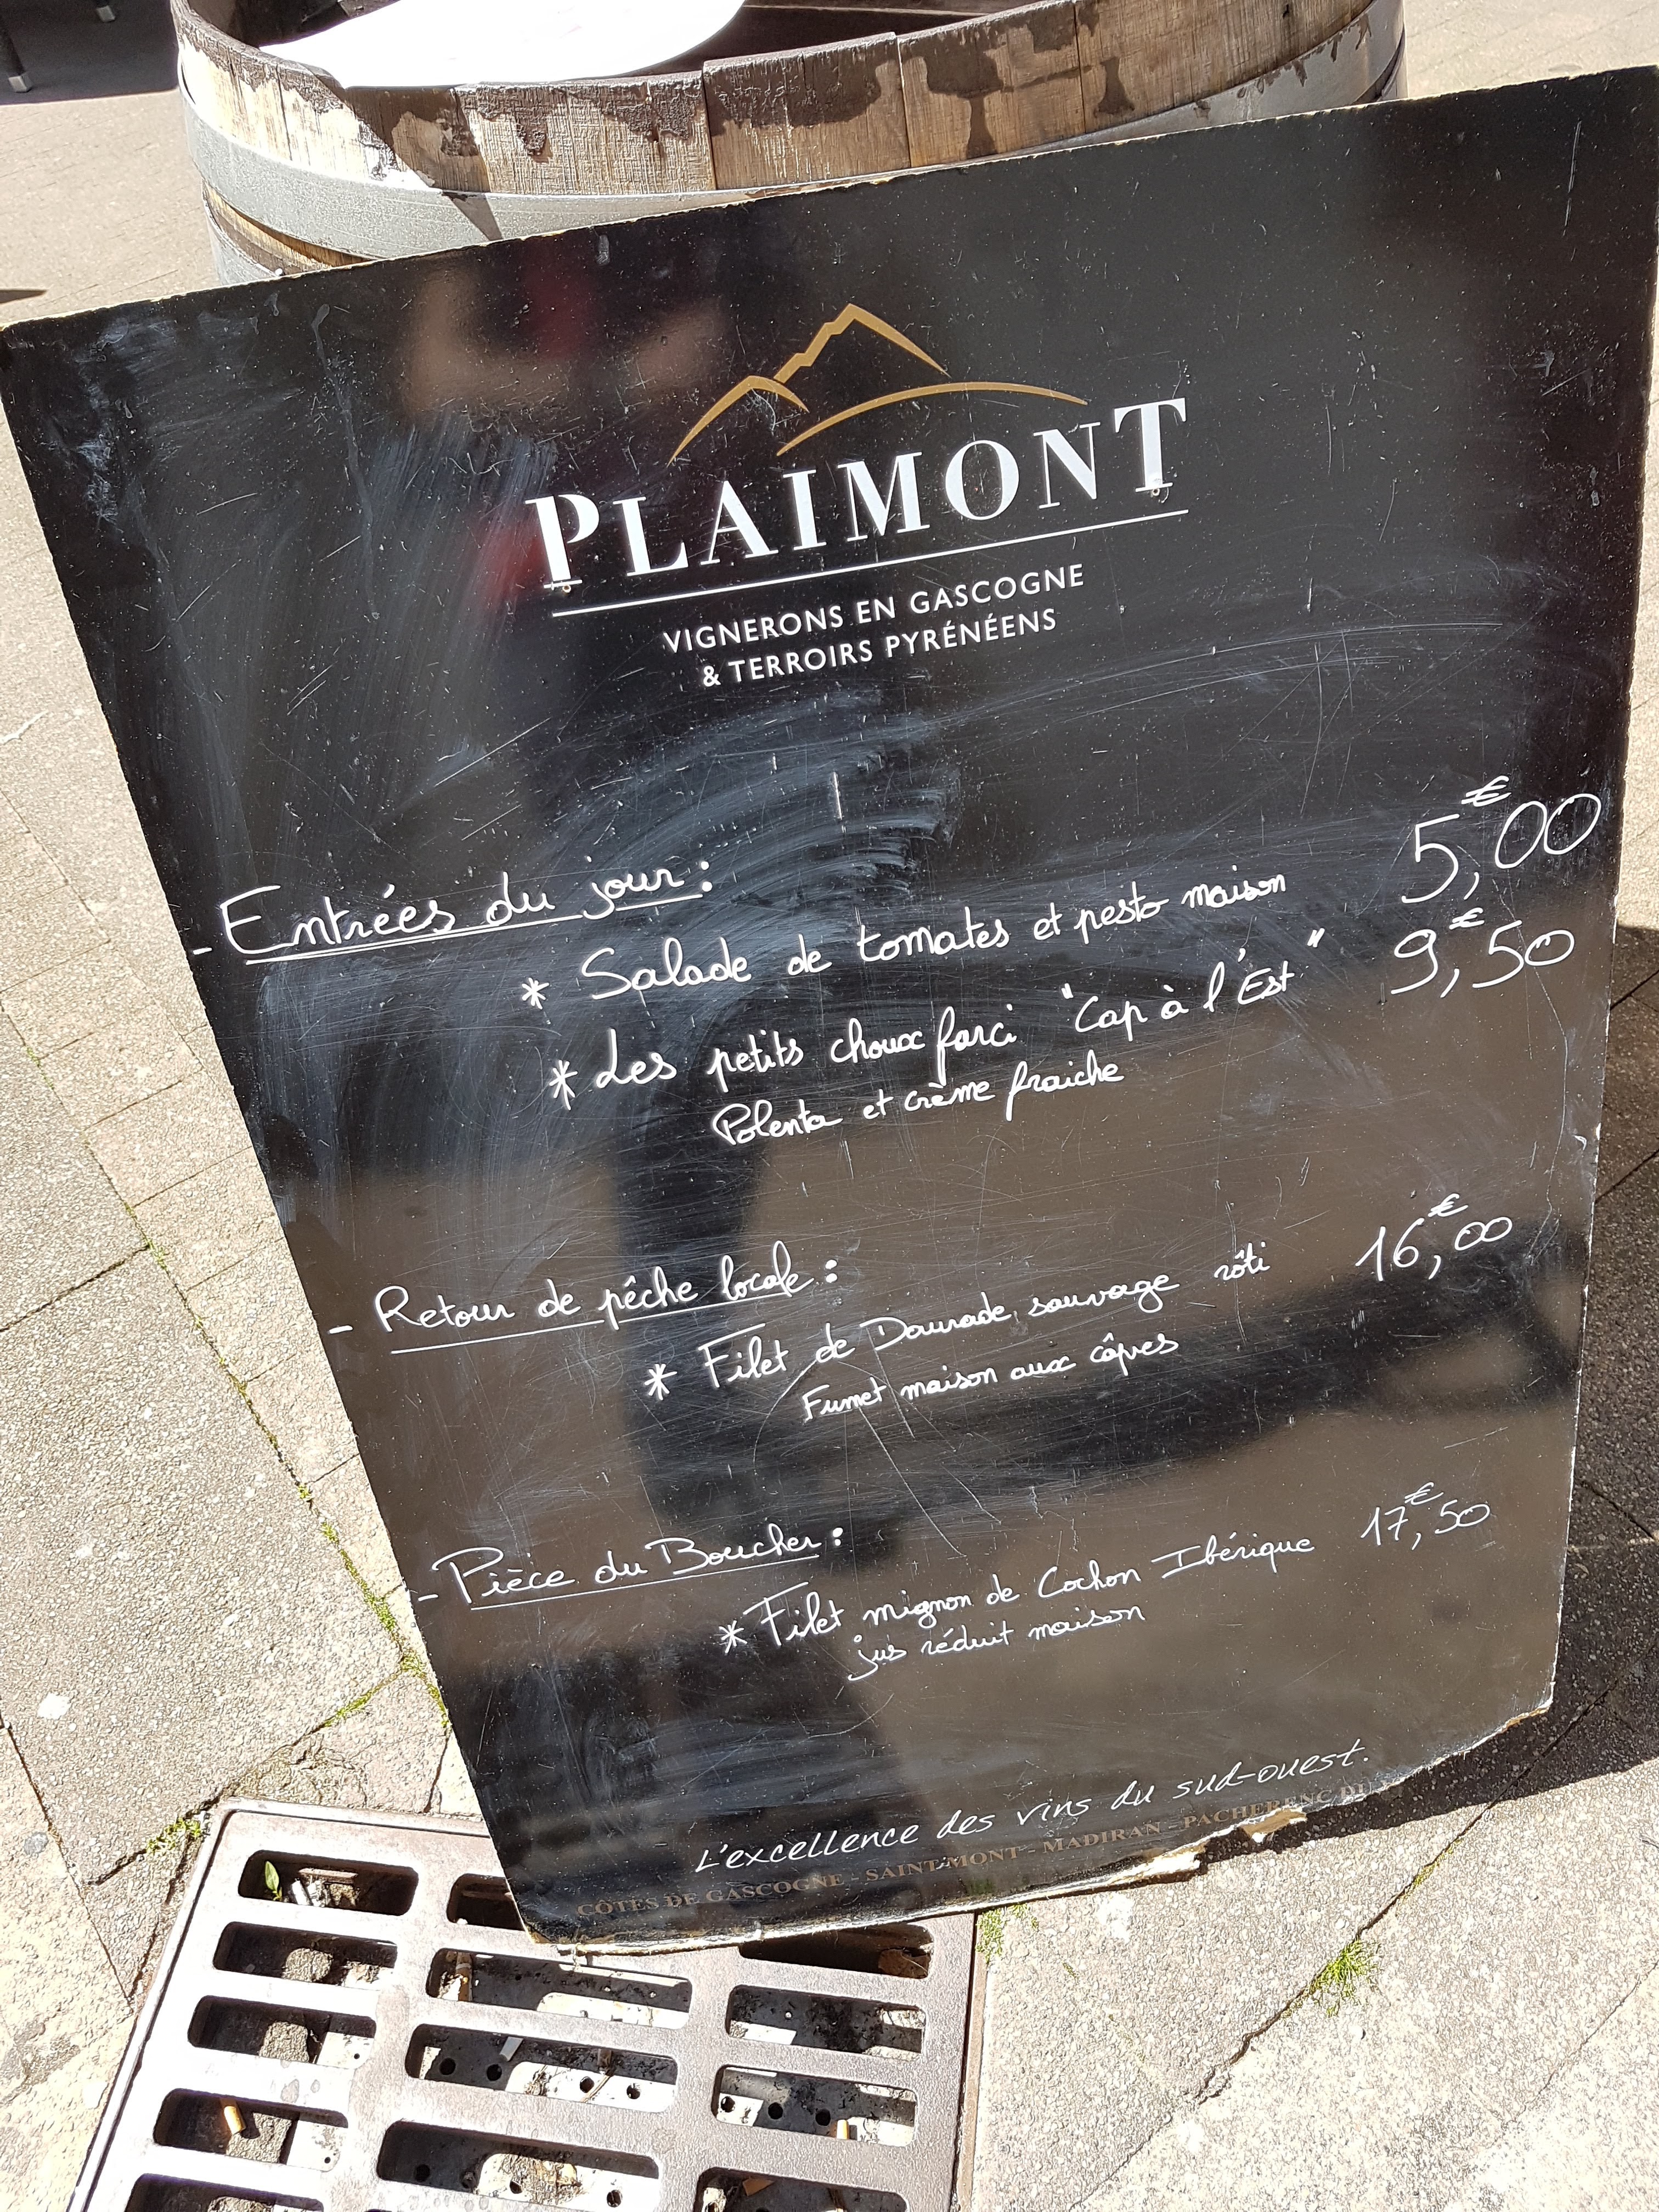 PLAIMONT
VIGNERONS EN GASCOGNE
& TERROIRS PYRÉNÉENS
- Entrées du jour :
* Salade de tomates et pesto maison 5,00€
* Les petits choux farci "Cap à l'Est" 9,50€
Polenta et crème fraiche
- Retour de pêche locale :
* Filet de Daurade sauvage rôti 16,00€
Fumet maison aux câpres
- Pièce du Boucher :
* Filet mignon de Cochon Ibérique 17,50€
jus réduit maison
L'excellence des vins du sud-ouest.
CÔTES DE GASCOGNE - SAINT MONT - MADIRAN - PACHERENC DU